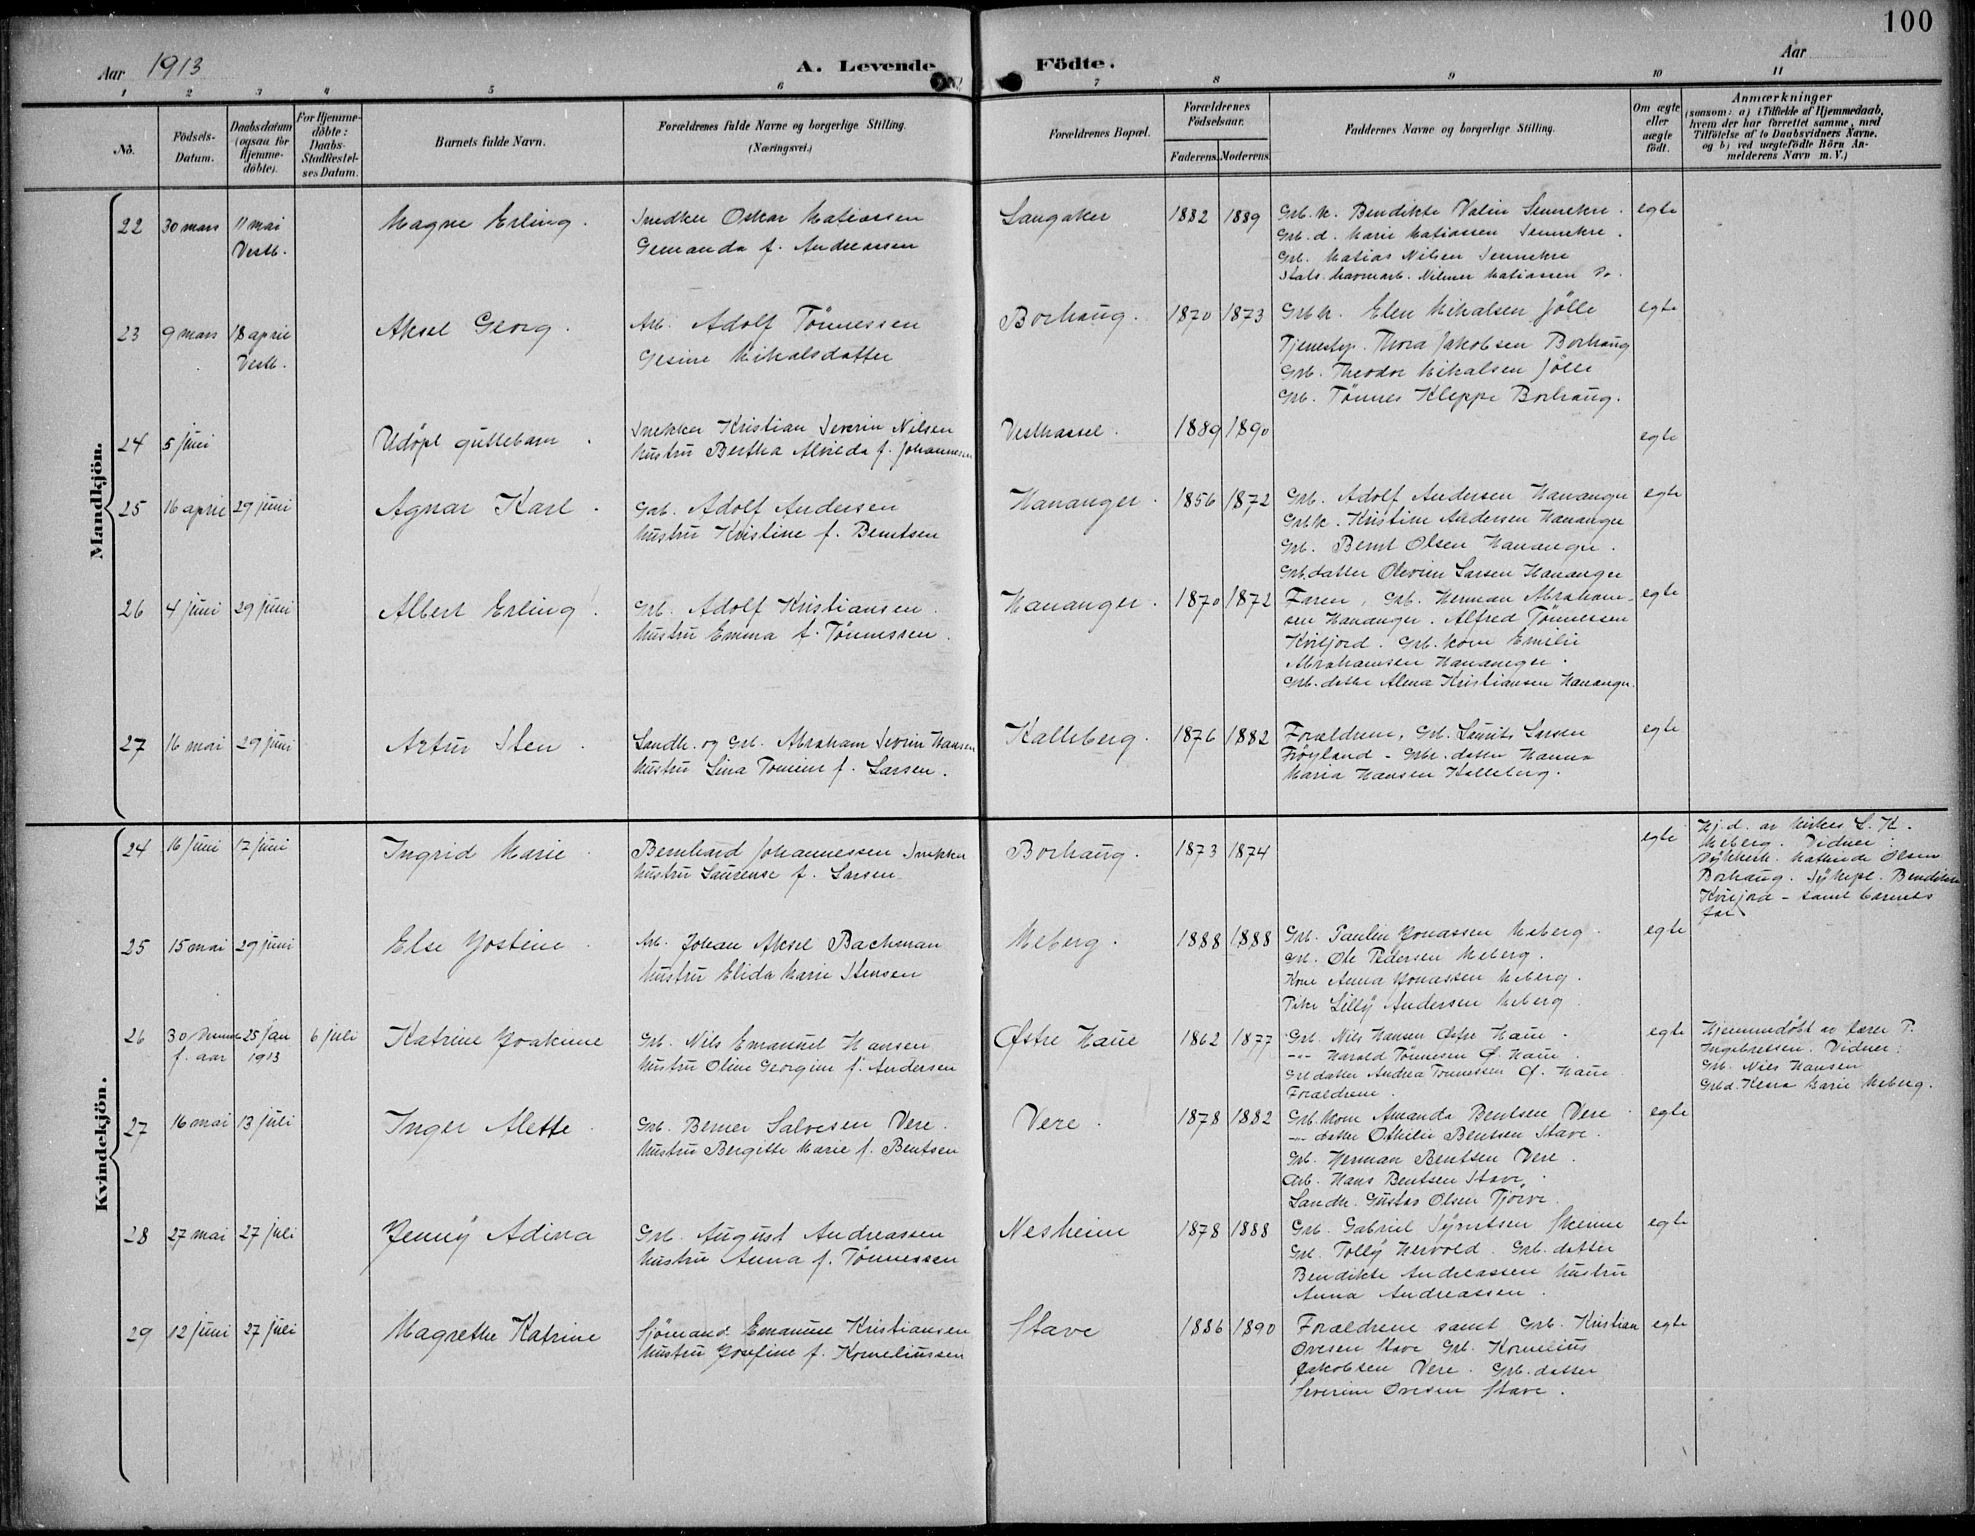 100
Aar 1913
A. Levende
Födte.
Aar
1 2 3 4 5 6 7 8 9 10 11
No.
Födsels-
Datum.
Daabsdatum
(ogsaa for
Hjemme-
döbte).
For Hjemme-
döbte:
Daabs-
Stadfæstel-
ses Datum.
Barnets fulde Navn.
Forældrenes fulde Navne og borgerlige Stilling.
(Næringsvei.)
Forældrenes Bopæl.
Forældrenes
Födselsaar.
Faderens. Moderens.
Faddernes Navne og borgerlige Stilling.
Om ægte
eller
uægte
födt.
Anmærkninger
(saasom: a) i Tilfælde af Hjemmedaab,
hvem der har forrettet samme, med
Tilföielse af to Daabsvidners Navne.
og b) ved uægtefödte Börn An-
melderens Navn m. V.)
Mandkjön.
22 30 mars 11 mai
Vestb.
Magne Erling.
Snedker Oskar Matiassen
Gemanda f. Andreassen
Langaker 1882 1889
Grb. k. Bendikte Valin Sennekre.
Grb. d. Marie Matiassen Sennekre.
Grb. Matias Nilsen Sennekre
Stats. havnearb. Nilmer Matiassen Do.
egte
23 9 mars 18 april
Vestb.
Aksel Georg.
Arb. Adolf Tönnessen
Gesine Mikalsdatter
Borhaug. 1870 1873
Grb.k. Elen Mikalsen Jölle
Tjenestep. Thora Jakobsen Borhaug
Grb. Theodor Mikalsen Jölle
Grb. Tönnes Kleppe Borhaug.
egte
24 5 juni
Udöpt guttebarn.
Snekker Kristian Severin Nilsen
Hustru Bertha Alvilda f. Johannesen
Vesthassel. 1889 1890
egte
25 16 april 29 juni
Agnar Karl.
Grb. Adolf Andersen
Hustru Kristine f. Berntsen
Hananger. 1856 1872
Grb. Adolf Andersen Hananger
Grb.k. Kristine Andersen Hananger
Grb. Bernt Olsen Hananger.
Grb.datter Olevine Larsen Hananger
egte
26 4 juni 29 juni
Albert Erling.
Grb. Adolf Kristiansen.
Hustru Emma f. Tönnessen.
Hananger. 1870 1872
Faren, Grb. Herman Abraham-
sen Hananger. Alfred Tönnessen
Kviljord. Grb. kone Emilie
Abrahamsen Hananger.
Grb. datter Alma Kristiansen Hananger.
egte
27 16 mai 29 juni
Artur Sten.
Landh. og Grb. Abraham Severin Hansen
Hustru Lina Tomine f. Larsen.
Kalleberg. 1876 1882
Forældrene, Grb. Laurits Larsen
Fröyland - Grb. datter Hanna
Maria Hansen Kalleberg.
egte
Kvindekjön.
24 16 juni 17 juni
Ingrid Marie.
Bernhard Johannessen Snekker
Hustru Laurense f. Larsen
Borhaug. 1873 1874
egte
Hj.d. av Kirkes. L. K.
Meberg. Vidner:
Matinde Olsen
Borhaug. Sykepl. Bendikte
Kviljord - samt barnets
far
25 15 mai 29 juni
Else Jostine.
Arb. Johan Aksel Bachman
Hustru Elida Marie Stensen
Meberg. 1888 1888
Grb. Paulin Jonassen Meberg.
Grb. Ole Pedersen Meberg.
Kone Anna Jonassen Meberg.
Pike Lilly Andersen Meberg
egte
26 30 f. aar 25 jan 1913 6 juli
Katrine Joakime
Grb. Nils Emanuel Hansen
Hustru Oline Georgine f. Andersen
Østre Haue 1862 1877
Grb. Nils Hansen Østre Haue.
-"- Harald Tönnesen Ø. Haue.
Grb.datter Andrea Tönnessen Ø. Haue
Forældrene.
egte
Hjemmedöbt av lærer P.
Ingebretsen. Vidner:
Grb. Nils Hansen
Grbd. Kesia Marie Meberg.
27 16 mai 13 juli
Inger Alette.
Grb. Berner Salvesen Vere.
Hustru Bergitte Marie f. Bentsen
Vere. 1878 1882
Grb. kone Amanda Bentsen Vere.
-"- datter Othilie Bentsen Stave.
Grb. Herman Bentsen Vere.
Arb. Hans Bentsen Stave.
Landh. Gustav Olsen Tjörve.
egte
28 27 mai 27 juli
Jenny Adina
Grb. August Andreassen
Hustru Anna f. Tönnessen
Nesheim 1878 1888
Grb. Gabriel Syvertsen Skeime
Grb. Tolly Hervold. Grb. datter
Bendikte Andreassen Hustru
Anna Andreassen.
egte
29 12 juni 27 juli
Magrethe Katrine
Sjömand Emanuel Kristiansen
Hustru Josefine f. Korneliussen
Stave 1886 1890
Forældrene samt Grb. Kristian
Ovesen Stave Grb. Kornelius
Jakobsen Vere. Grb. datter
Severine Ovesen Stave.
egte